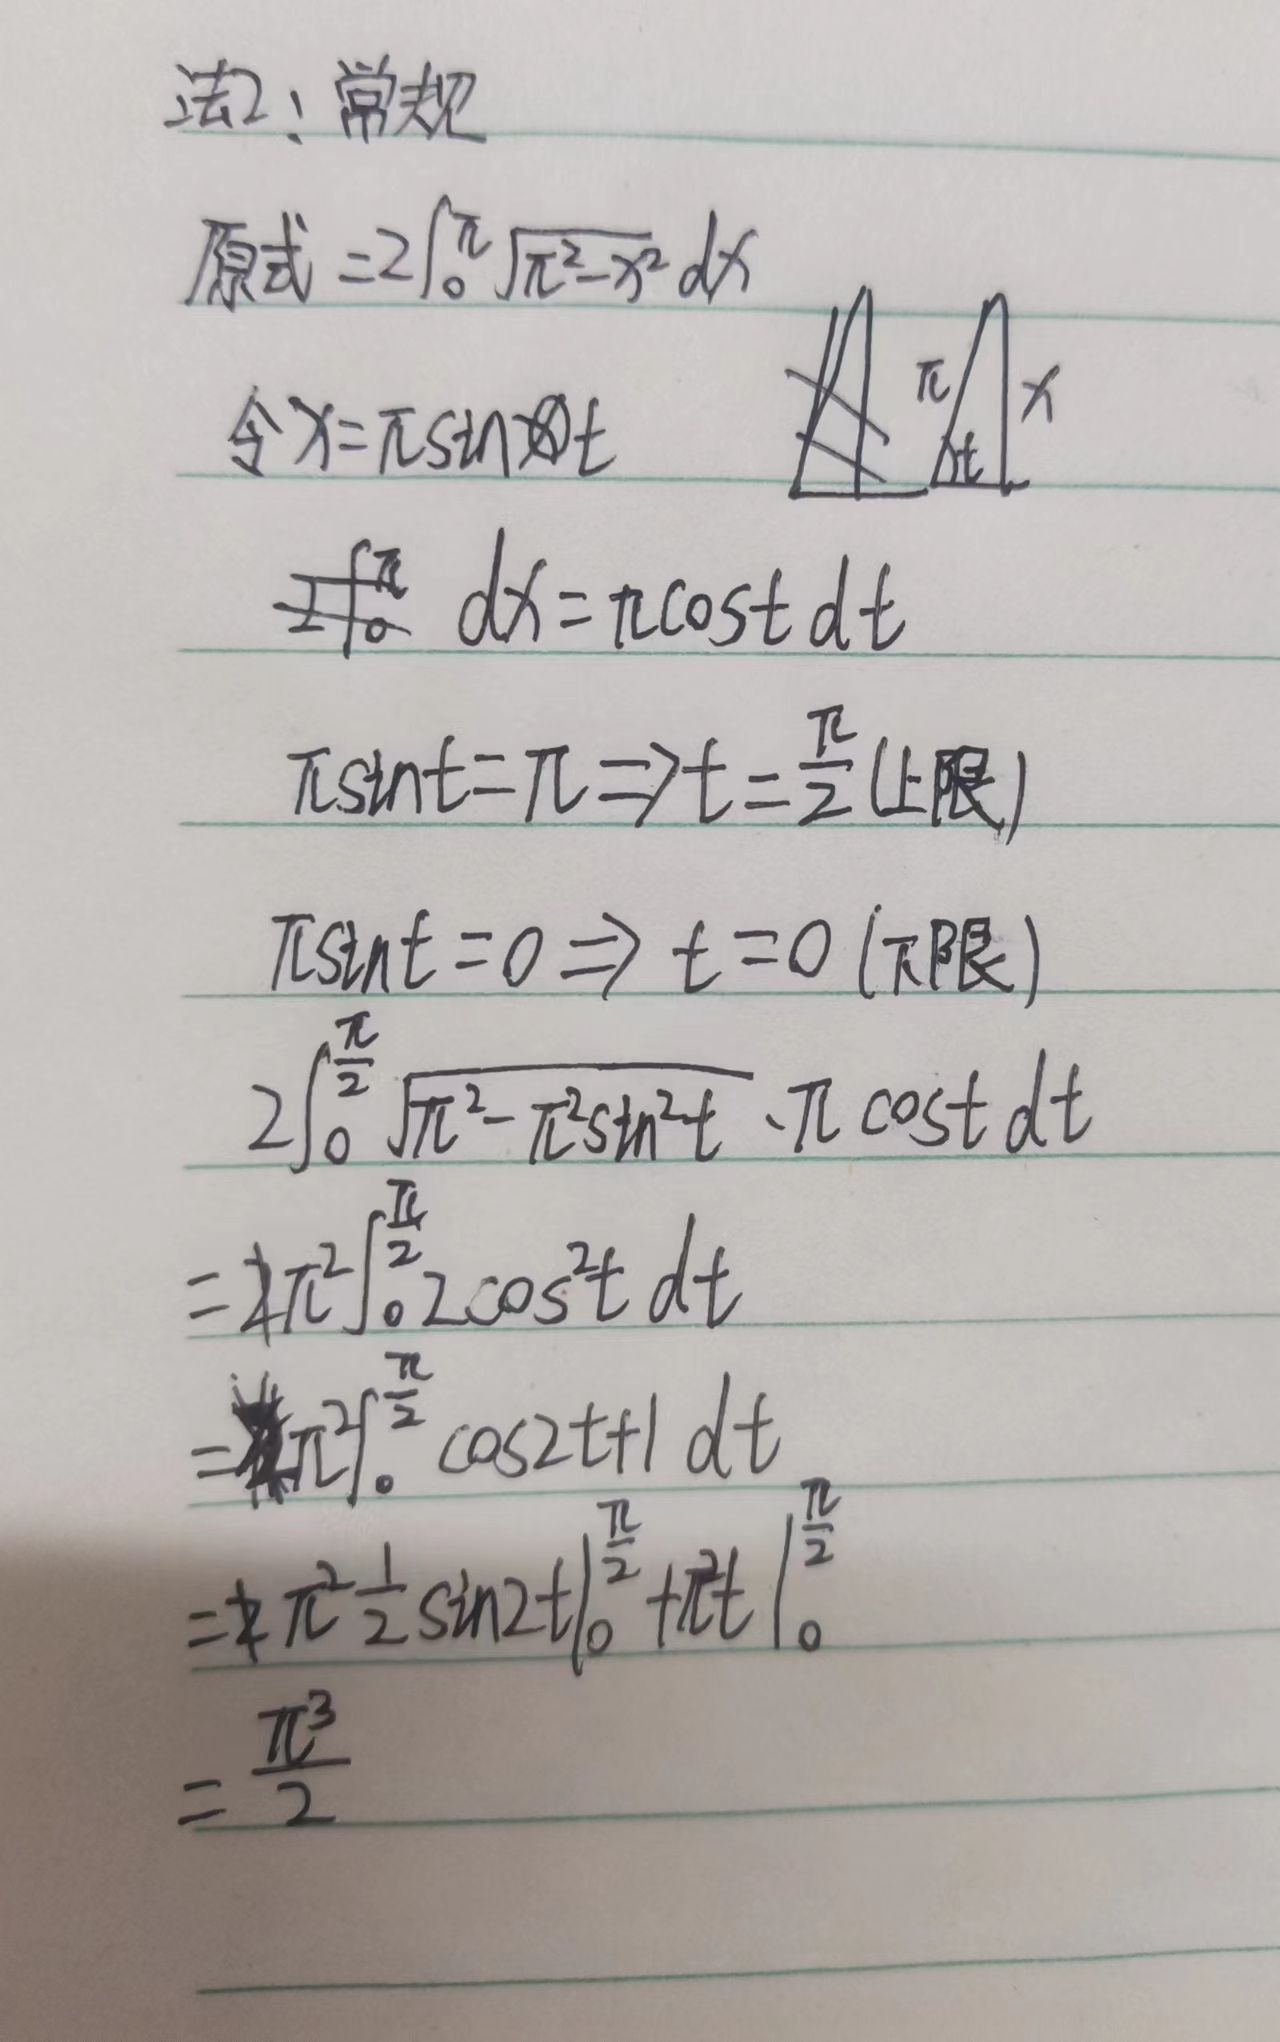 法2：常规
原式=2∫₀^π √(π²-x²) dx
令x=πsin t
π x t
dx=πcost dt
πsint=π⇒t=π/2(上限)
πsint=0⇒t=0(下限)
2∫₀^(π/2) √(π²-π²sin²t)·πcost dt
=π²∫₀^(π/2) 2cos²t dt
=π²∫₀^(π/2) cos2t+1 dt
=π² 1/2 sin2t|₀^(π/2)+π²t|₀^(π/2)
=π³/2